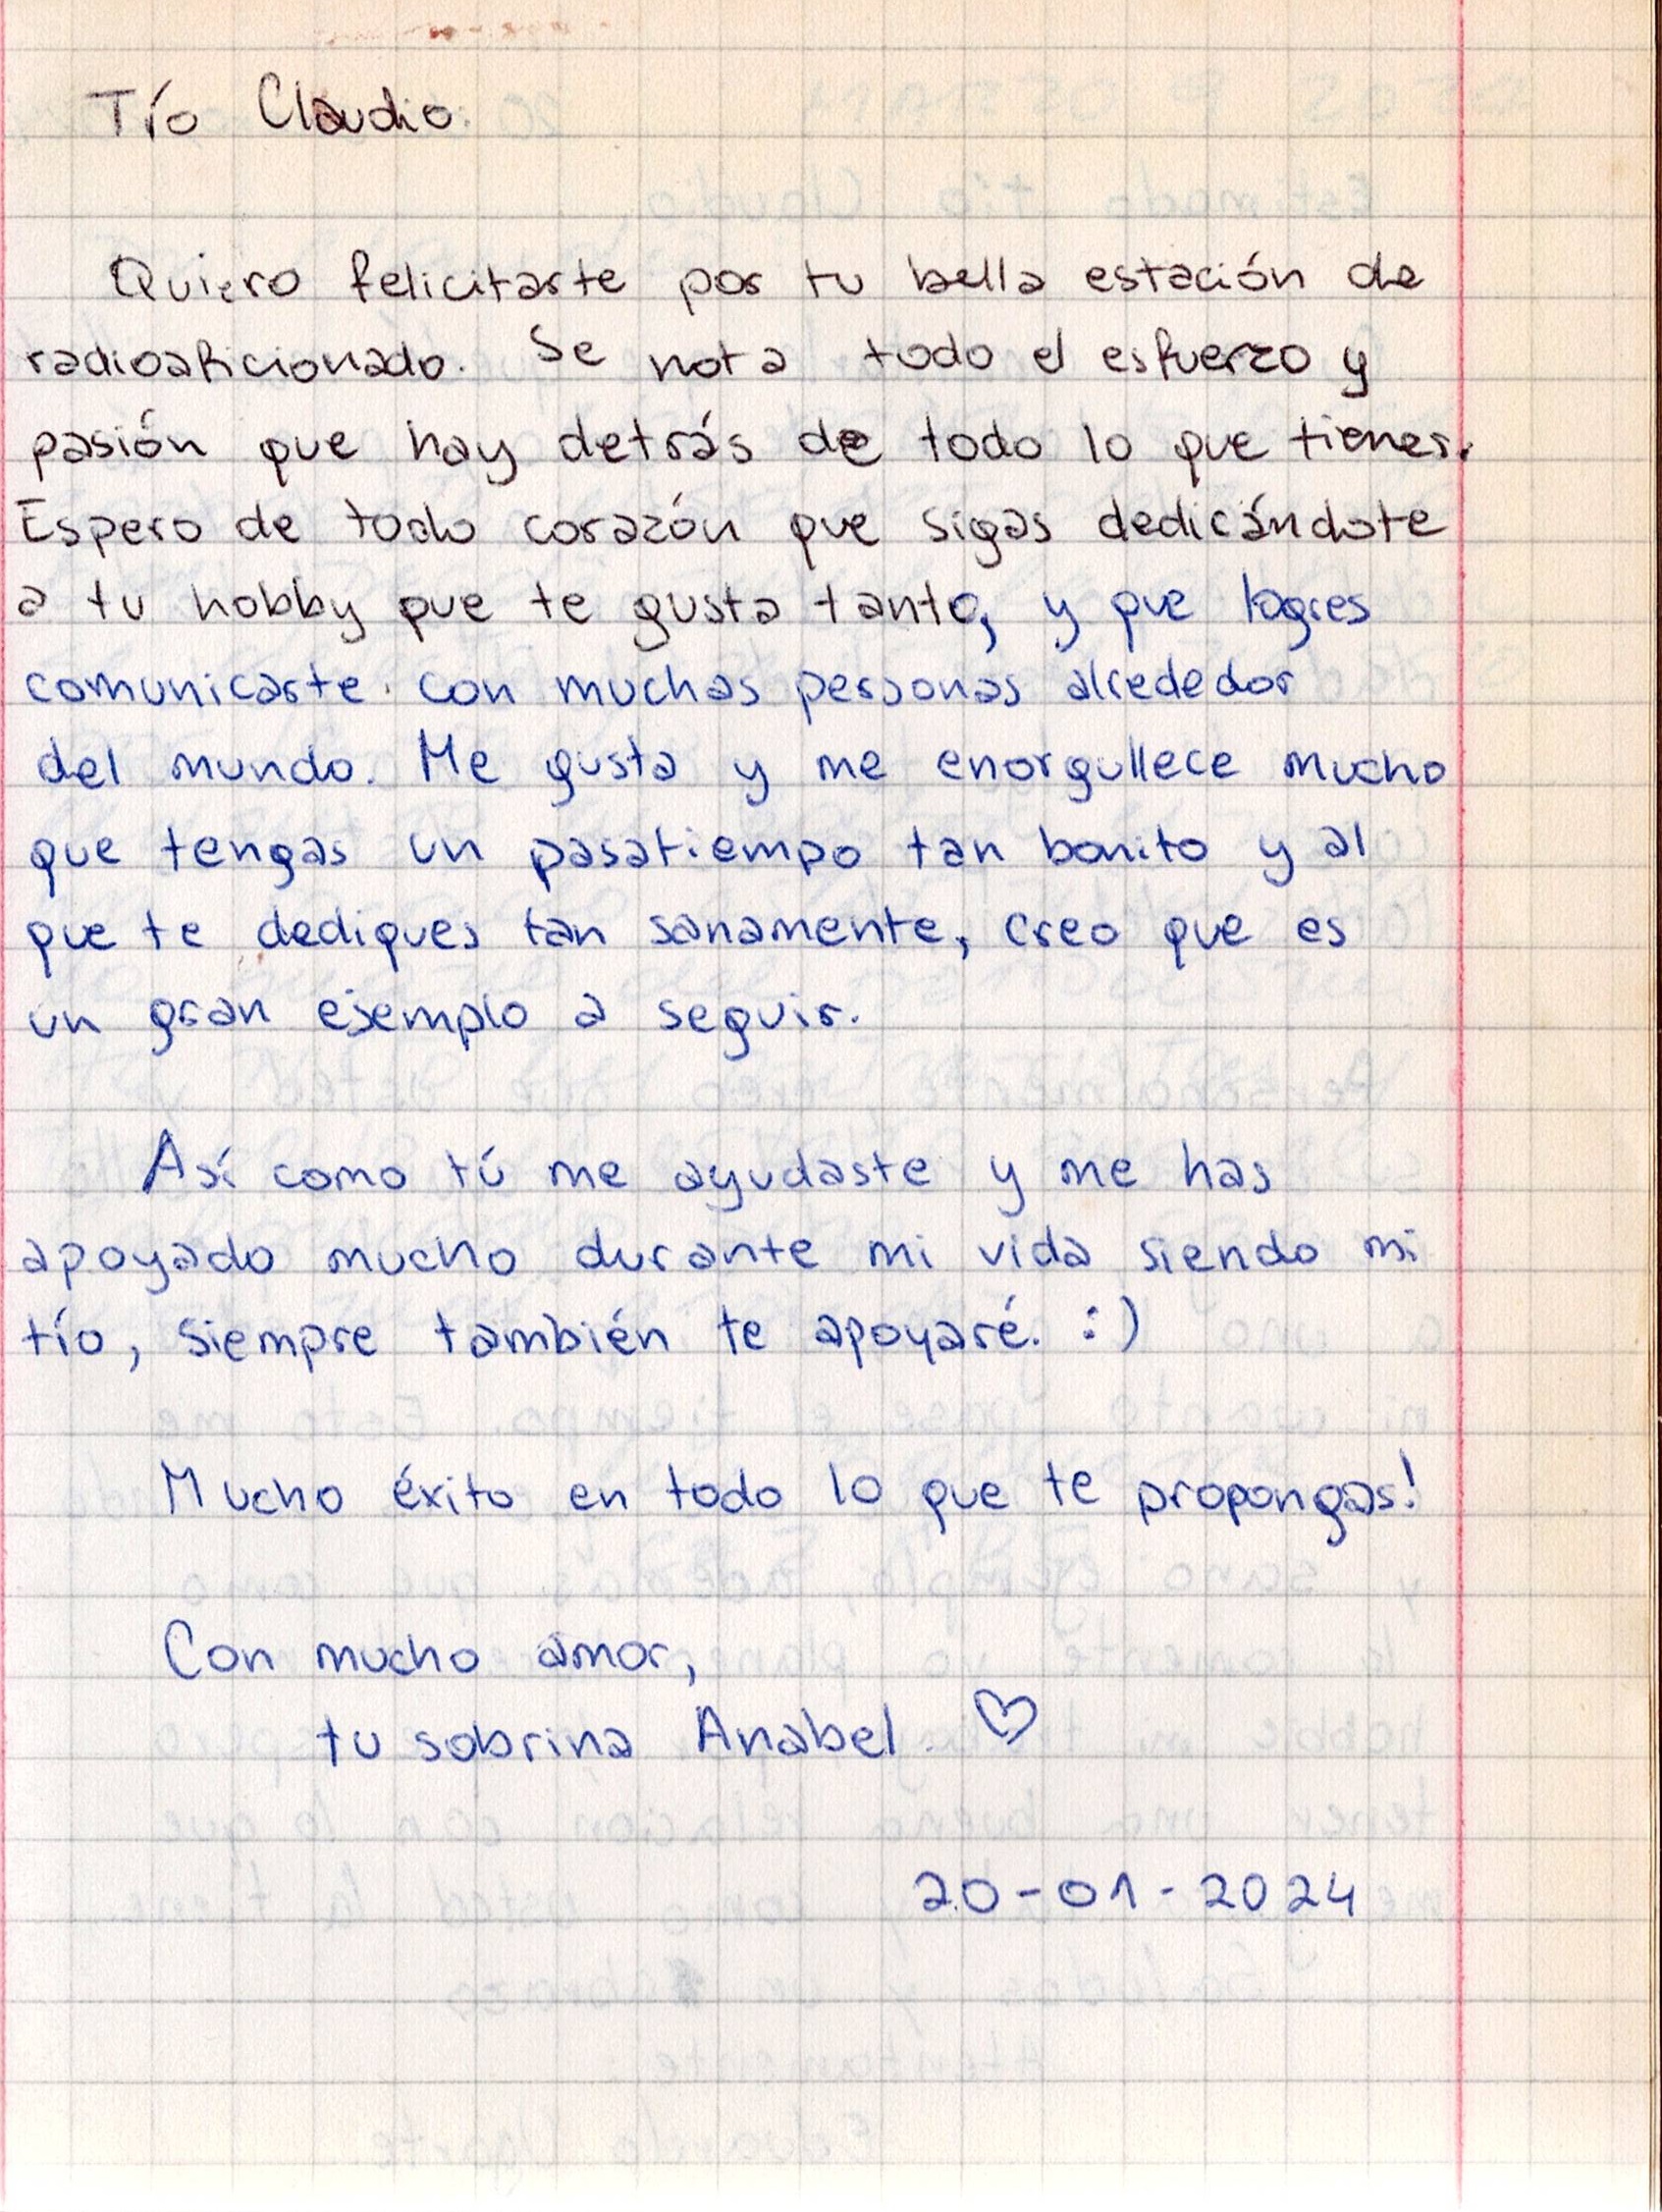 Tío Claudio:
Quiero felicitarte por tu bella estación de
radioaficionado. Se nota todo el esfuerzo y
pasión que hay detrás de todo lo que tienes.
Espero de todo corazón que sigas dedicándote
a tu hobby que te gusta tanto, y que logres
comunicarte con muchas personas alrededor
del mundo. Me gusta y me enorgullece mucho
que tengas un pasatiempo tan bonito y al
que te dediques tan sanamente, creo que es
un gran ejemplo a seguir.
Así como tú me ayudaste y me has
apoyado mucho durante mi vida siendo mi
tío, siempre también te apoyaré. :)
Mucho éxito en todo lo que te propongas!
Con mucho amor,
tu sobrina Anabel ♡
20-01-2024